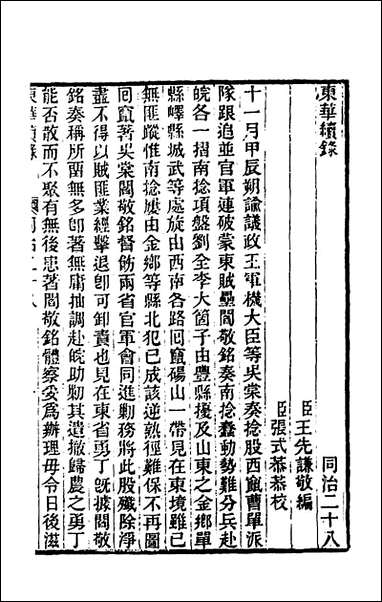 東華續錄
同治二十八
臣王先謙敬編
臣張式恭恭校
十一月甲辰朔諭議政王軍機大臣等吳棠奏捻股西竄曹單派
隊跟追並官軍連破蒙東賊壘閻敬銘奏南捻蠢動勢難分兵赴
皖各一摺南捻項盤劉全李大箇子由豐縣擾及山東之金鄉單
縣嶧縣城武等處旋由西南各路囘竄碭山一帶見在東境雖已
無匪蹤惟南捻屢由金鄉等縣北犯已成該逆熟徑難保不再圖
囘竄著吳棠閻敬銘督飭兩省官軍會同進勦務將此股殲除淨
盡不得以賊匪業經擊退卽可卸責也見在東省勇丁旣據閻敬
銘奏稱所留無多卽著無庸抽調赴皖助勦其遣撤歸農之勇丁
能否散而不聚有無後患著閻敬銘體察妥爲辦理毋令日後滋
東華續錄 同治二十八